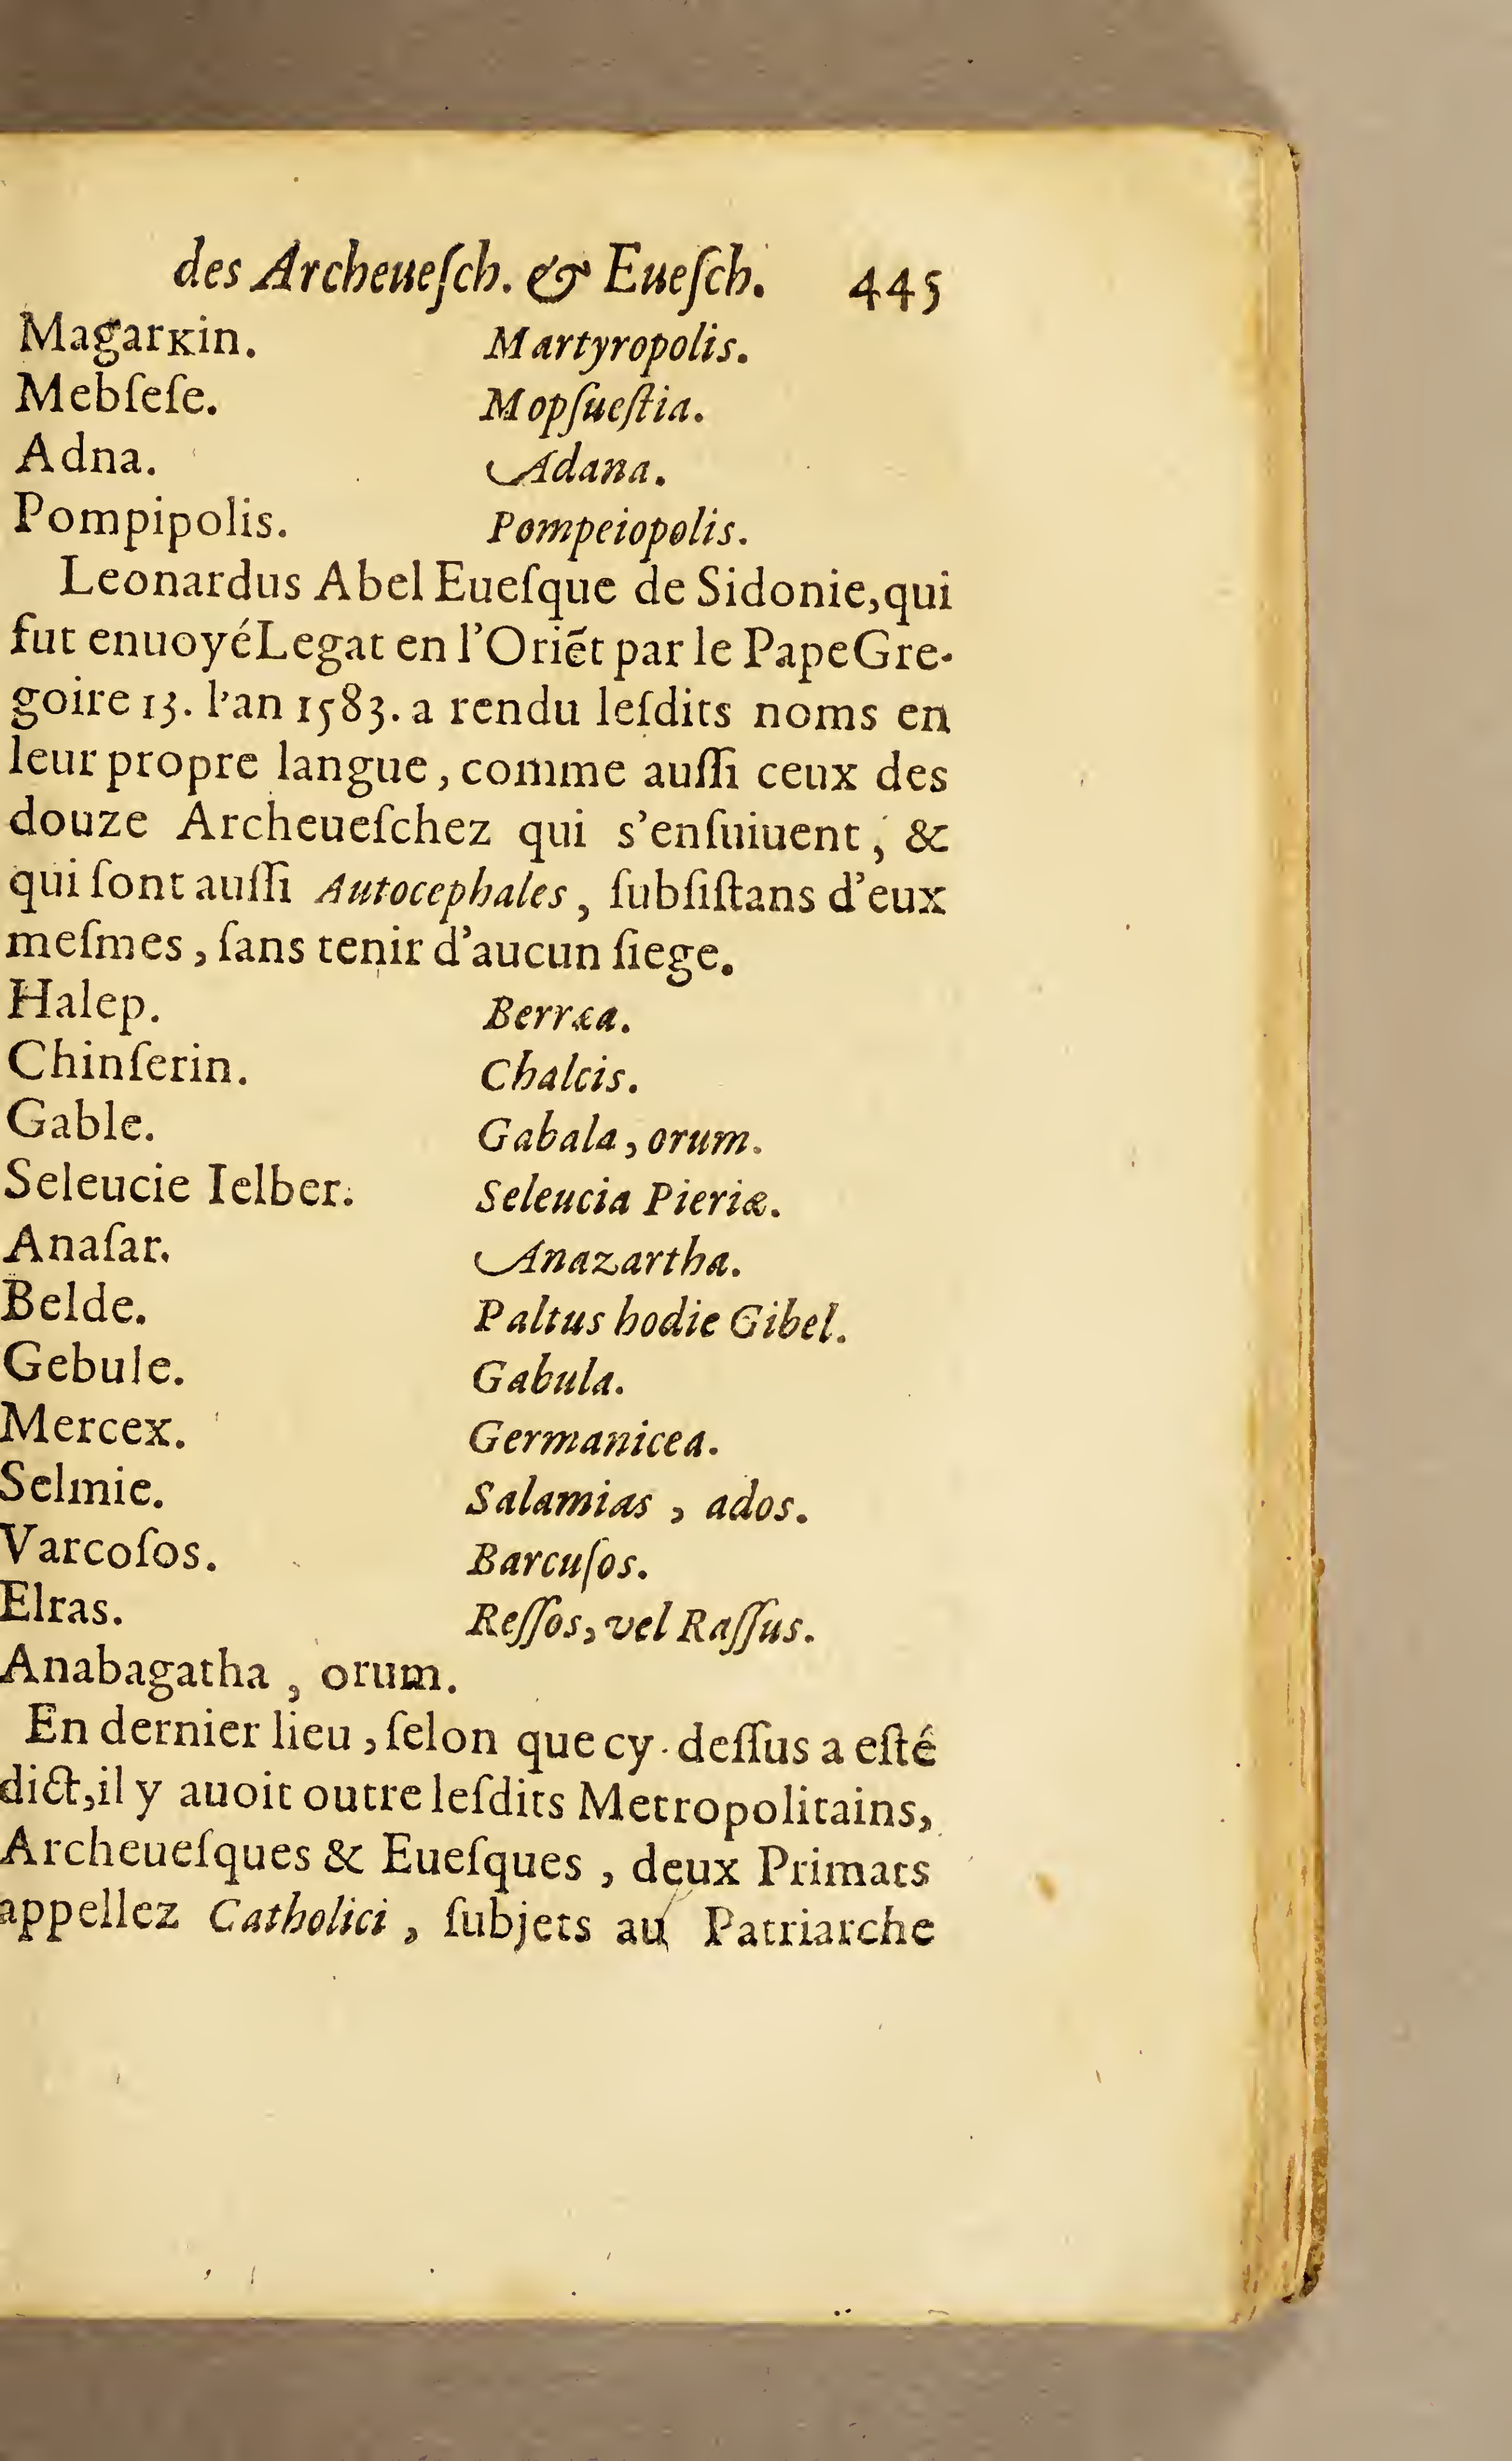 des Archeueſch. & Eueſch. 445
Magarĸin. Martyropolis.
Mebſeſe. Mopſueſtia.
Adna. Adana.
Pompipolis. Pompeiopolis.
Leonardus Abel Eueſque de Sidonie,qui
fut enuoyéLegat en l'Oriẽt par le PapeGre-
goire 13. l'an 1583. a rendu leſdits noms en
leur propre langue, comme auſſi ceux des
douze Archeueſchez qui s'enſuiuent, &
qui ſont auſſi Autocephales, ſubſiſtans d'eux
meſmes, ſans tenir d'aucun ſiege.
Halep. Berræa.
Chinſerin. Chalcis.
Gable. Gabala, orum.
Seleucie Ielber. Seleucia Pieriæ.
Anaſar. Anazartha.
Belde. Paltus hodie Gibel.
Gebule. Gabula.
Mercex. Germanicea.
Selmie. Salamias, ados.
Varcoſos. Barcuſos.
Elras. Reſſos, vel Raſſus.
Anabagatha, orum.
En dernier lieu, ſelon que cy-deſſus a eſté
dict,il y auoit outre leſdits Metropolitains,
Archeueſques & Eueſques, deux Primats
appellez Catholici, ſubjets au Patriarche